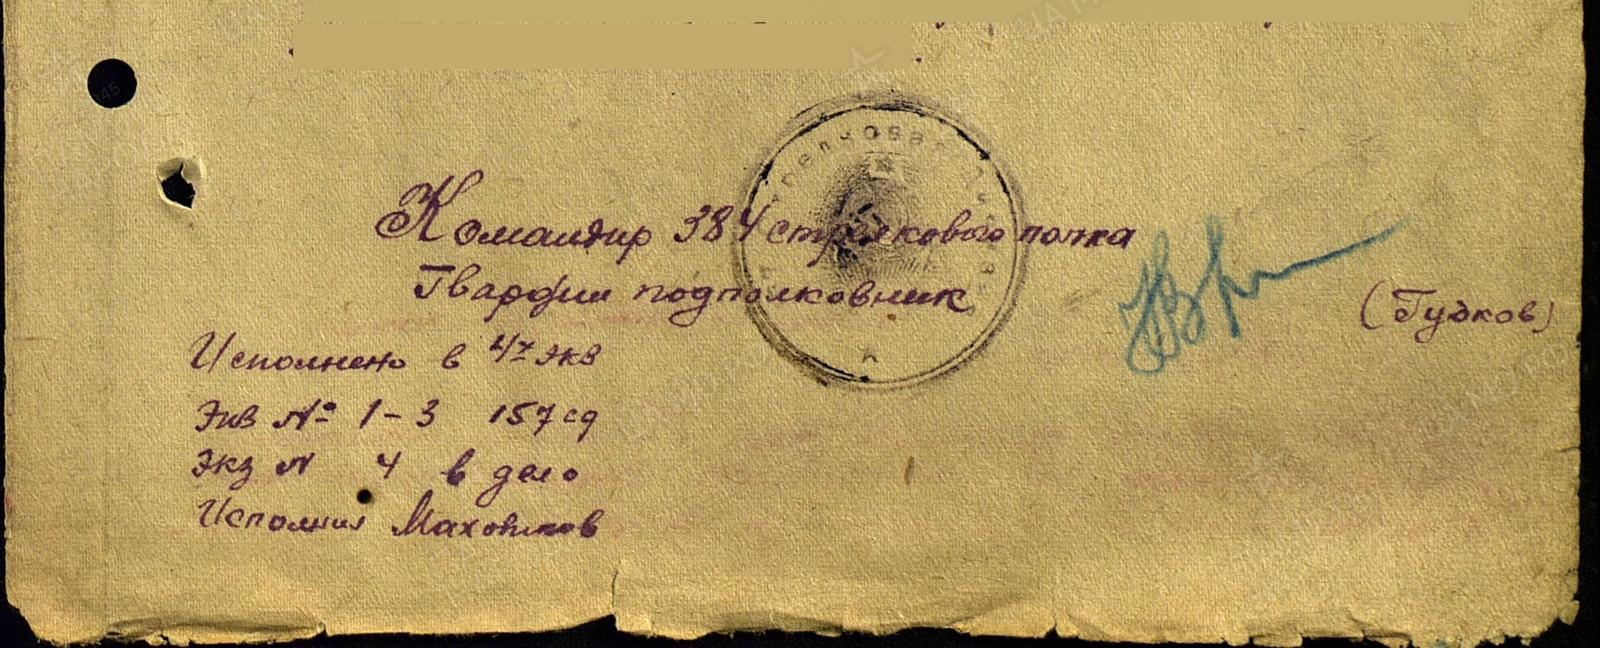 Командир 384 стрелкового полка
Гвардии подполковник
(Гудков)
Исполнено в 4х экз
Экз № 1-3 157 сд
Экз № 4 в дело
Исполнил